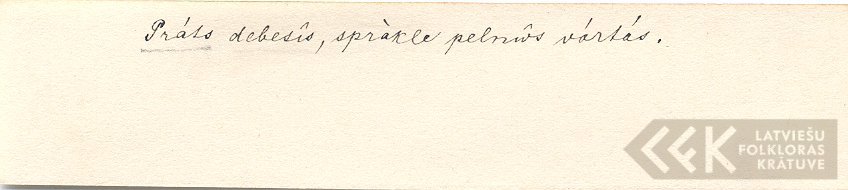 Práts debesîs, spràkle pelnûs vártás.
LATVIEŠU
FOLKLORAS
KRĀTUVE